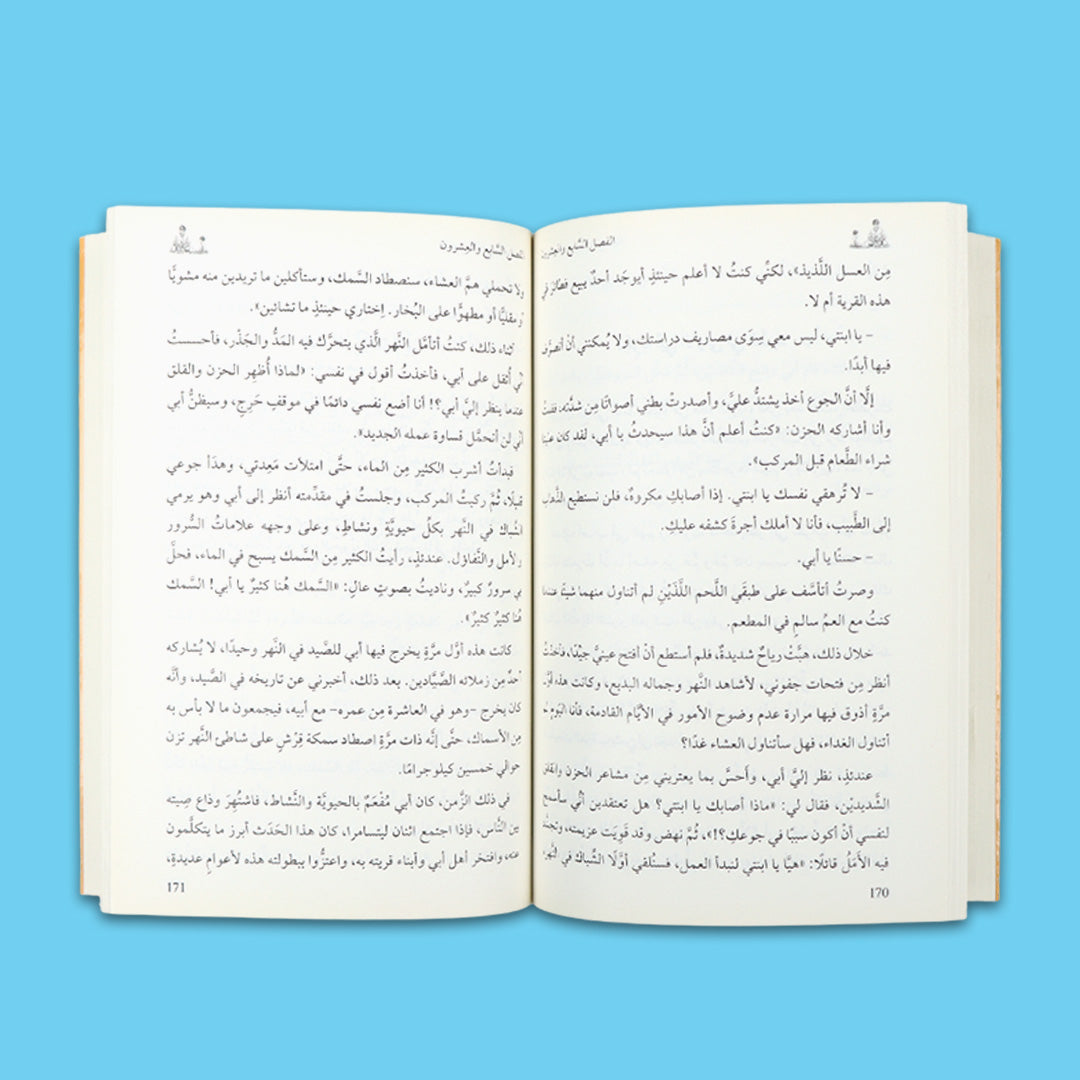 الفصل السَّابع والعِشرون
مِن العسل اللَّذيذ»، لكنِّي كنتُ لا أعلم حينئذٍ أيوجَد أحدٌ يبيع فطائرَ في
هذه القرية أم لا.
– يا ابنتي، ليس معي سِوَى مصاريف دراستك، ولا يُمكنني أنْ أتصرَّف
فيها أبدًا.
إلَّا أنَّ الجوع أخذ يشتدُّ عليَّ، وأصدرتْ بطني أصواتًا مِن شدَّته. فقلتُ
وأنا أشاركه الحزن: «كنتُ أعلم أنَّ هذا سيحدثُ يا أبي، لقد كان علينا
شراء الطَّعام قبل المركب».
– لا تُرهقي نفسك يا ابنتي. إذا أصابكِ مكروهٌ، فلن نستطيع الذَّهاب
إلى الطَّبيب، فأنا لا أملك أجرةَ كشفه عليكِ.
– حسنًا يا أبي.
وصرتُ أتأسَّف على طبقَي اللَّحم اللَّذَيْنِ لم أتناول منهما شيئًا عندما
كنتُ مع العمِّ سالمٍ في المطعم.
خلال ذلك، هبَّتْ رياحٌ شديدةٌ، فلم أستطع أنْ أفتح عينيَّ جيِّدًا، فأخذتُ
أنظر مِن فتحات جفوني، لأشاهد النَّهر وجماله البديع، وكانت هذه أوَّل
مرَّةٍ أذوق فيها مرارة عدم وضوح الأمور في الأيَّام القادمة، فأنا اليوم لم
أتناول الغداء، فهل سأتناول العشاء غدًا؟
عندئذٍ، نظر إليَّ أبي، وأحسَّ بما يعتريني مِن مشاعر الحزن والقلق
الشَّديديْن، فقال لي: «ماذا أصابك يا ابنتي؟ هل تعتقدين أنِّي سأسمح
لنفسي أنْ أكون سببًا في جوعكِ؟!»، ثُمَّ نهض وقد قَوِيَت عزيمته، وتجدَّد
فيه الأمَلُ قائلًا: «هيَّا يا ابنتي لنبدأ العمل، فسنُلقي أوَّلًا الشِّباك في النَّهر،
170
الفصل السَّابع والعِشرون
ولا تحملي همَّ العشاء، سنصطاد السَّمك، وستأكلين ما تريدين منه مشويًّا
أو مقليًّا أو مطهوًّا على البُخار. اِختاري حينئذٍ ما تشائين».
أثناء ذلك، كنتُ أتأمَّل النَّهر الَّذي يتحرَّك فيه المَدُّ والجَذْر، فأحسستُ
أنِّي أُثقل على أبي، فأخذتُ أقول في نفسي: «لماذا أُظهِر الحزن والقلق
عندما ينظر إليَّ أبي؟! أنا أضع نفسي دائمًا في موقفٍ حَرِجٍ، وسيظنُّ أبي
أنِّي لن أتحمَّل قساوة عمله الجديد».
فبدأتُ أشرب الكثير مِن الماء، حتَّى امتلأت مَعِدتي، وهدَأ جوعي
قليلًا، ثُمَّ ركبتُ المركب، وجلستُ في مقدِّمته أنظر إلى أبي وهو يرمي
الشِّباك في النَّهر بكلِّ حيويَّةٍ ونشاطٍ، وعلى وجهه علاماتُ السُّرور
والأمل والتَّفاؤل. عندئذٍ، رأيتُ الكثير مِن السَّمك يسبح في الماء، فحلَّ
بي سرورٌ كبيرٌ، وناديتُ بصوتٍ عالٍ: «السَّمك هُنا كثيرٌ يا أبي! السَّمك
هُنا كثيرٌ كثيرٌ».
كانت هذه أوَّل مرَّةٍ يخرج فيها أبي للصَّيد في النَّهر وحيدًا، لا يُشاركه
أحدٌ مِن زملائه الصَّيَّادين. بعد ذلك، أخبرني عن تاريخه في الصَّيد، وأنَّه
كان يخرج –وهو في العاشرة مِن عمره– مع أبيه، فيجمعون ما لا بأس به
مِن الأسماك، حتَّى إنَّه ذات مرَّةٍ اصطاد سمكة قِرْشٍ على شاطئ النَّهر تزن
حوالي خمسين كيلوجرامًا.
في ذلك الزَّمن، كان أبي مُفْعَمٌ بالحيويَّة والنَّشاط، فاشتُهِرَ وذاع صِيته
بين النَّاس، فإذا اجتمع اثنان ليتسامرا، كان هذا الحَدَث أبرز ما يتكلَّمون
عنه، وافتخر أهل أبي وأبناء قريته به، واعتزُّوا ببطولته هذه لأعوامٍ عديدةٍ،
171